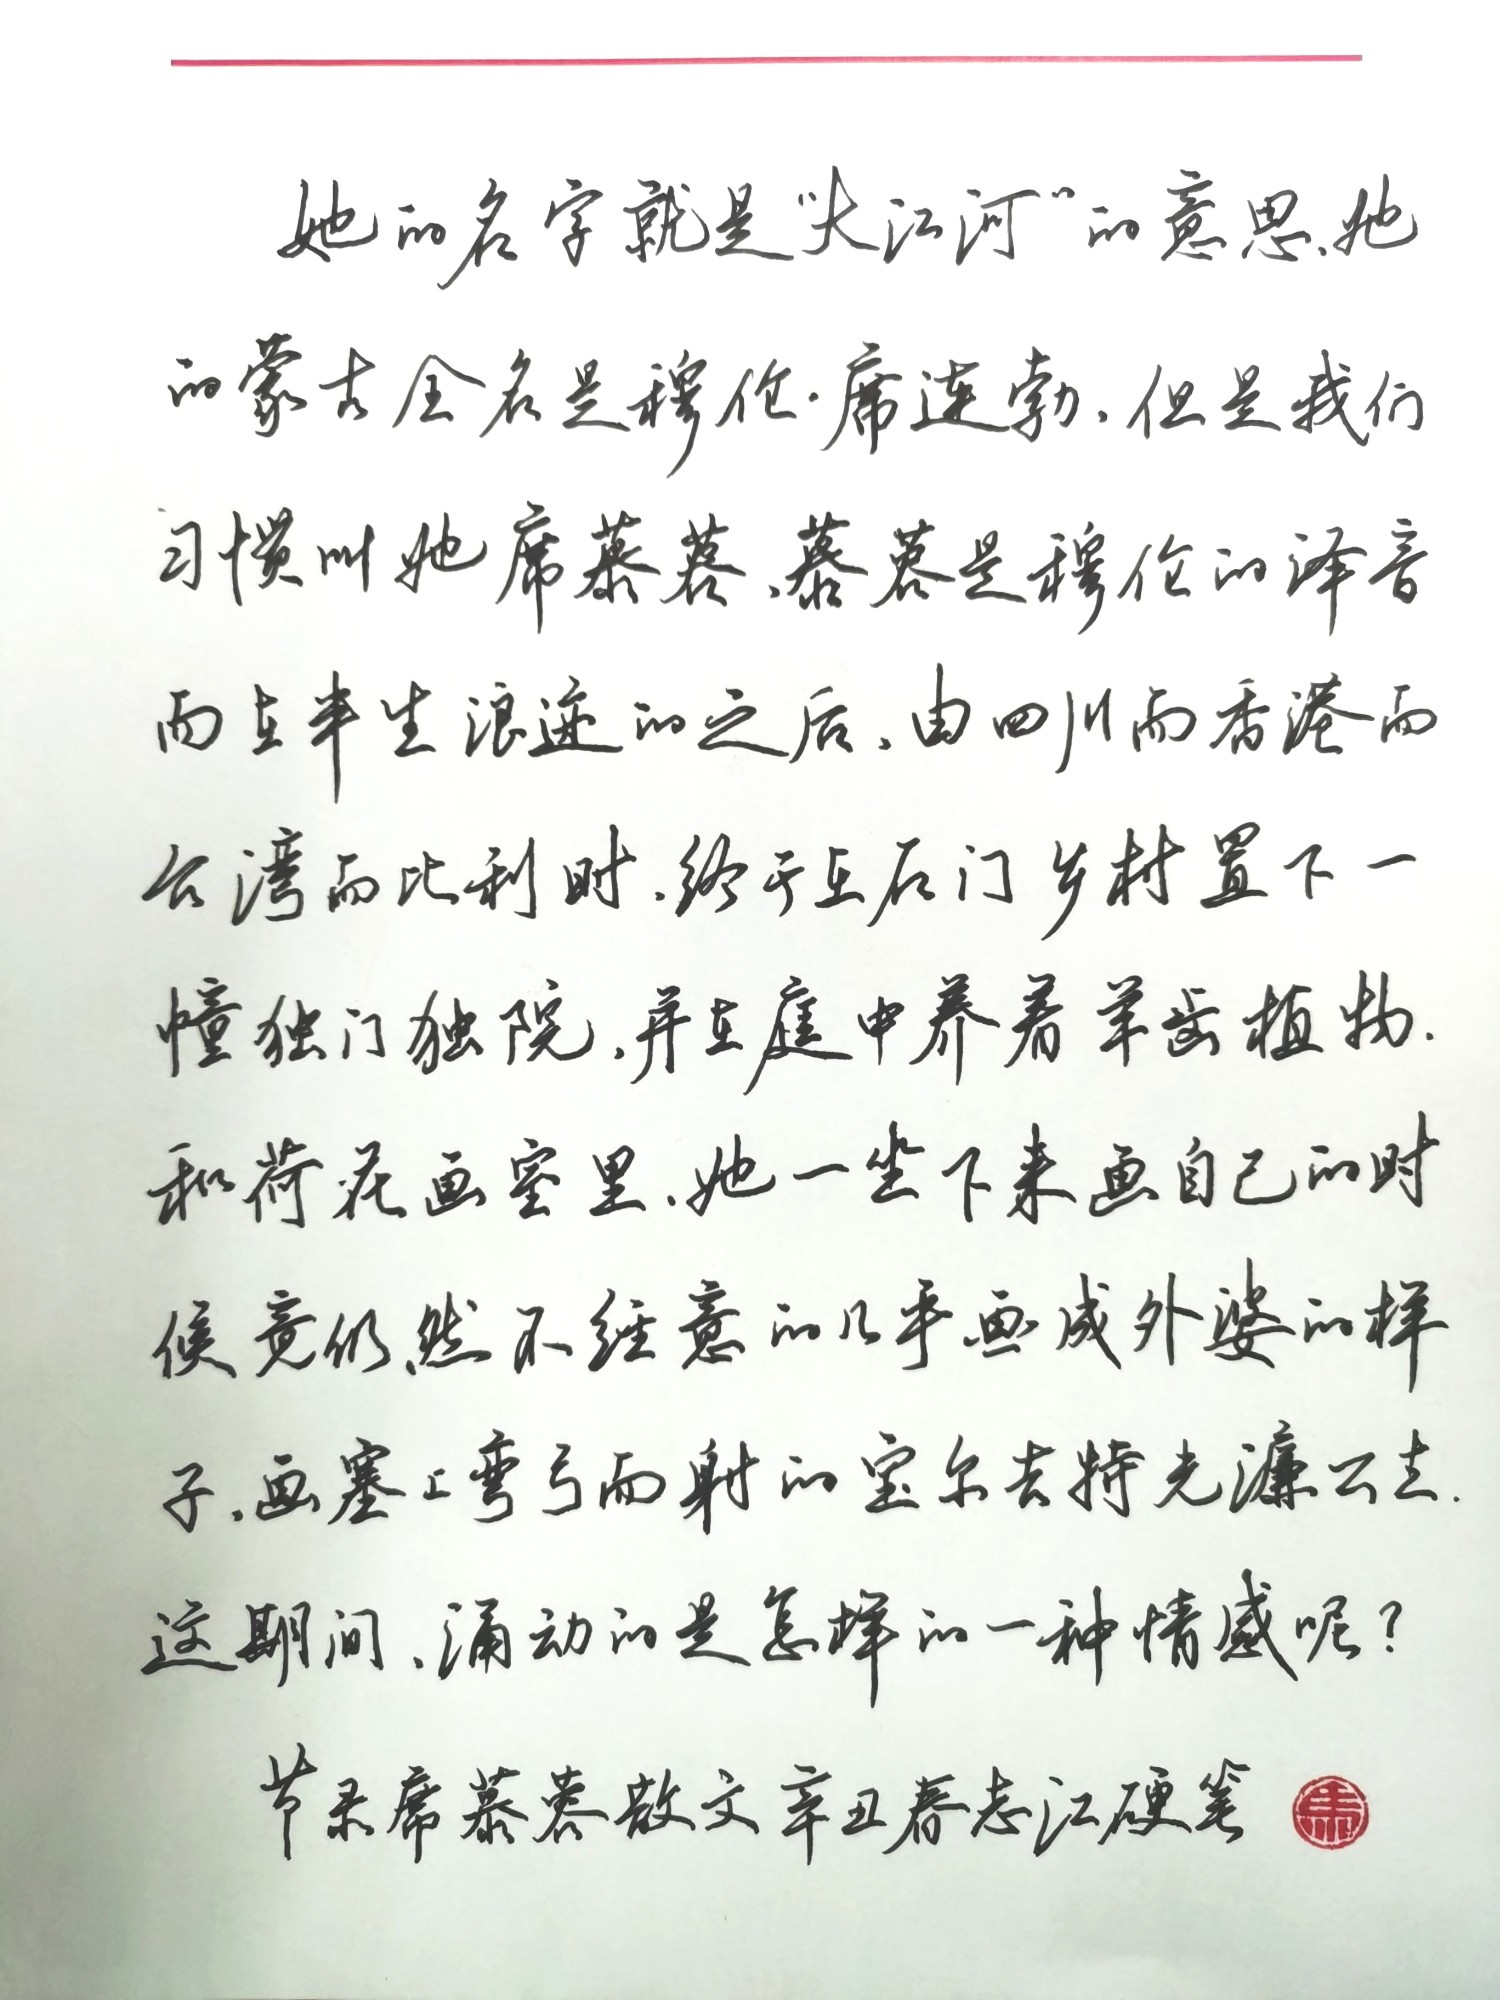 她的名字就是“大江河”的意思、她
的蒙古全名是穆伦·席连勃、但是我们
习惯叫她席慕蓉、慕蓉是穆伦的译音
而在半生浪迹的之后、由四川而香港而
台湾而比利时、终于在石门乡村置下一
幢独门独院、并在庭中养着羊齿植物.
和荷花画室里、她一坐下来画自己的时
候竟仍然不经意的几乎画成外婆的样
子、画塞上弯弓而射的宝尔吉特光濂公主.
这期间、涌动的是怎样的一种情感呢?
节录席慕蓉散文辛丑春志江硬笔